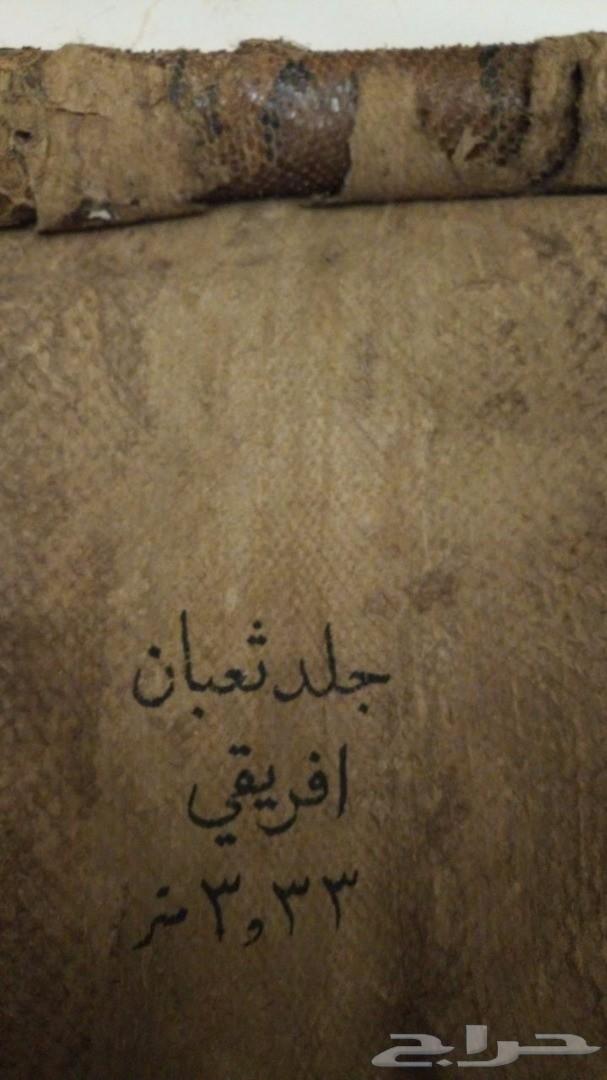 جلد ثعبان
افريقي
٣٣ و٣ متر
حراج